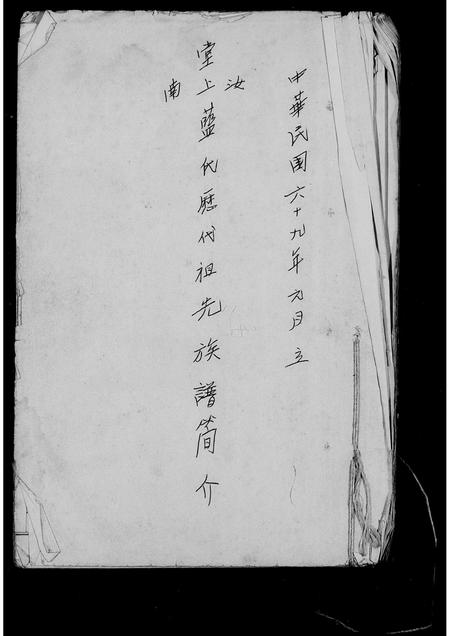 中華民国六十九年元月立
汝南
堂上藍代歷代祖先族譜簡介